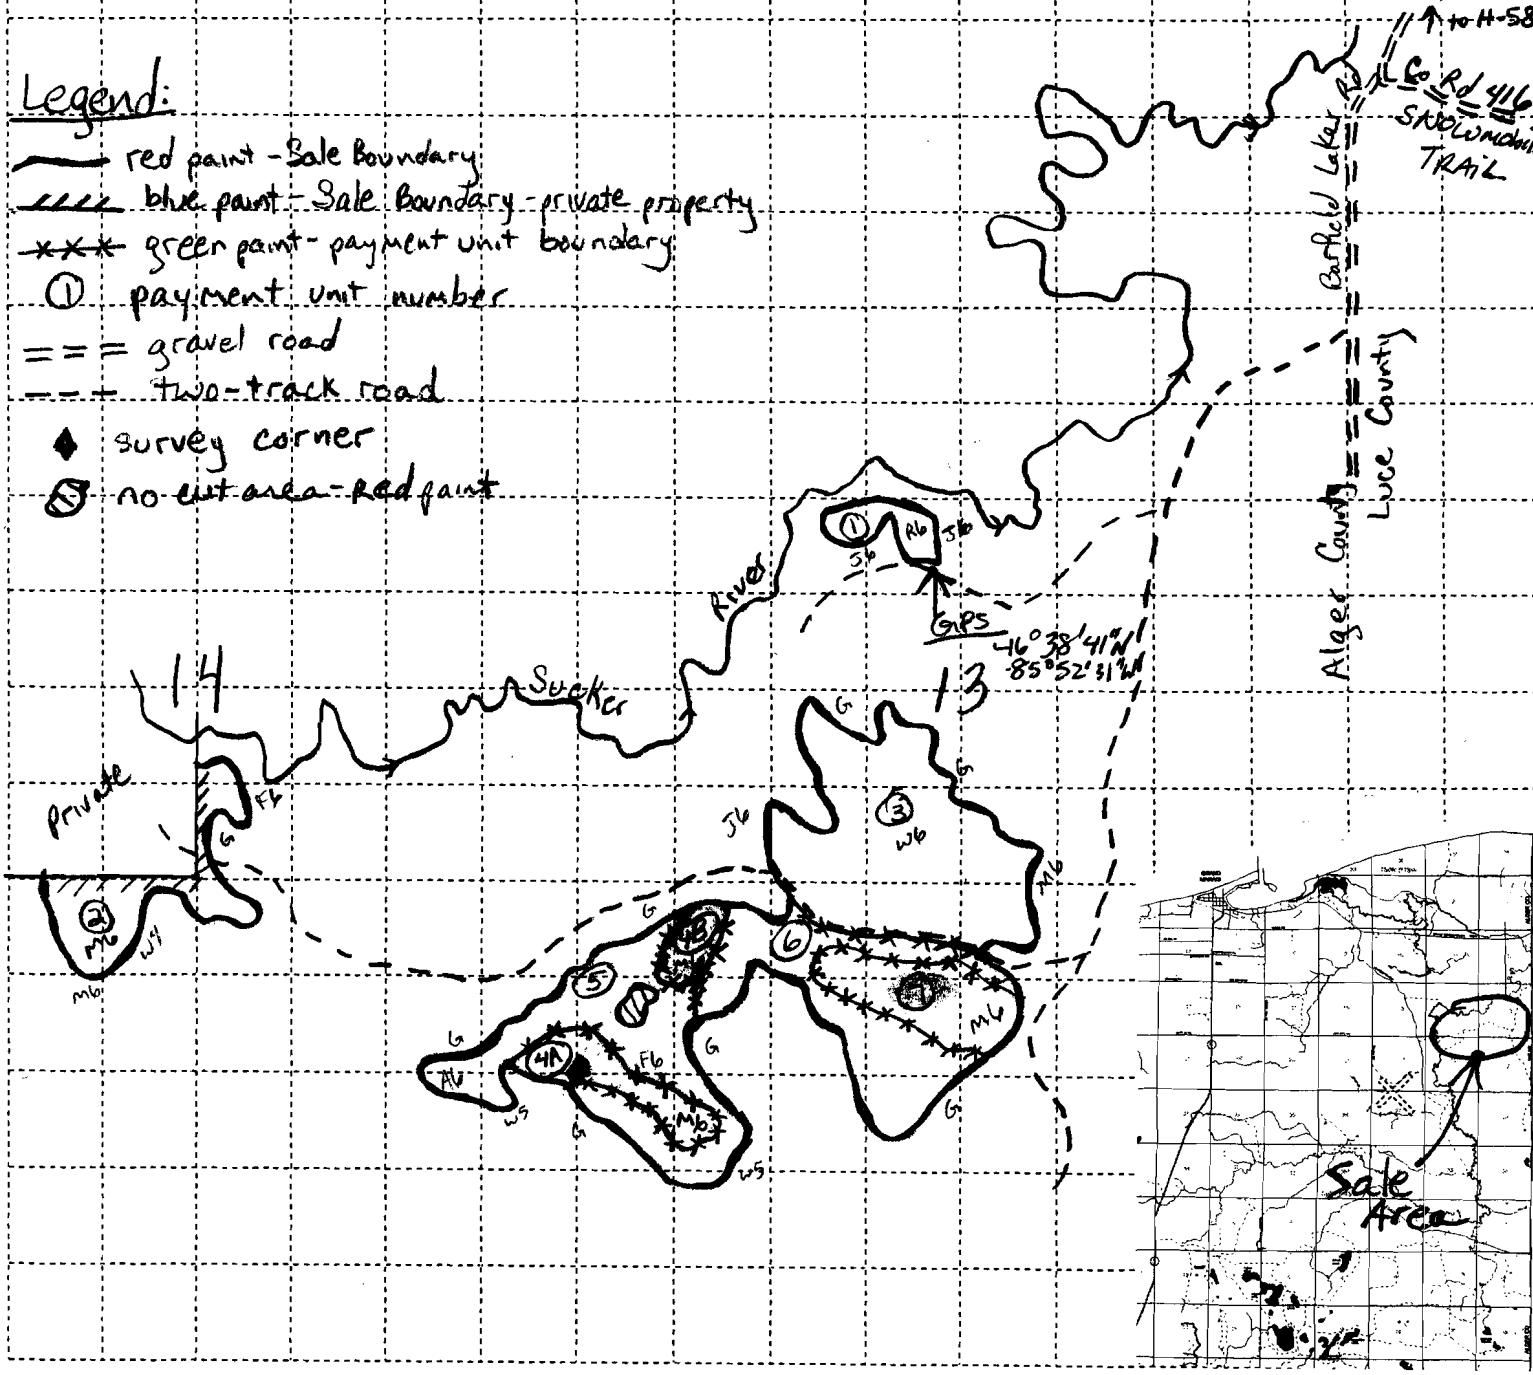 Legend:
red paint - Sale Boundary
blue paint - Sale Boundary - private property
green paint - payment unit boundary
1 payment unit number
gravel road
two-track road
survey corner
no cut area - Red paint
to H-58
Co Rd 416
SNOWMOBILE
TRAIL
Rd
Alger County
Luce County
1
R6
J6
J6
GPS
46° 38' 41" N
-85° 52' 31" W
River
Sucker
14
13
Private
F6
G
2
M6
W4
M6
G
G
3
W6
J6
M6
G
4B
6
5
7
M6
G
4A
F6
G
A6
W5
G
M6
W5
G
Sale
Area